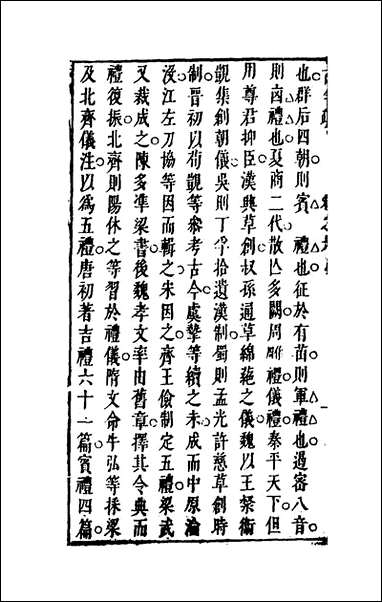 也群后四朝則賓禮也征於有苗則軍禮也遏密八音
則凶禮也夏商二代散亡多闕周雕禮儀禮秦平天下但
用尊君抑臣漢興草創叔孫通草綿蕝之儀魏以王粲衛
覬集創朝儀吳則丁孚拾遺漢制蜀則孟光許慈草創時
制晉初以荀觀等叅考古今虞摯等續之未成而中原淪
沒江左刀協等因而輯之宋因之齊王儉制定五禮梁武
又裁成之陳多準梁書後魏孝文率由舊章擇其令典而
禮復振北齊則陽休之等習於禮儀隋文命牛弘等採梁
及北齊儀注以為五禮唐初著吉禮六十一篇賓禮四篇